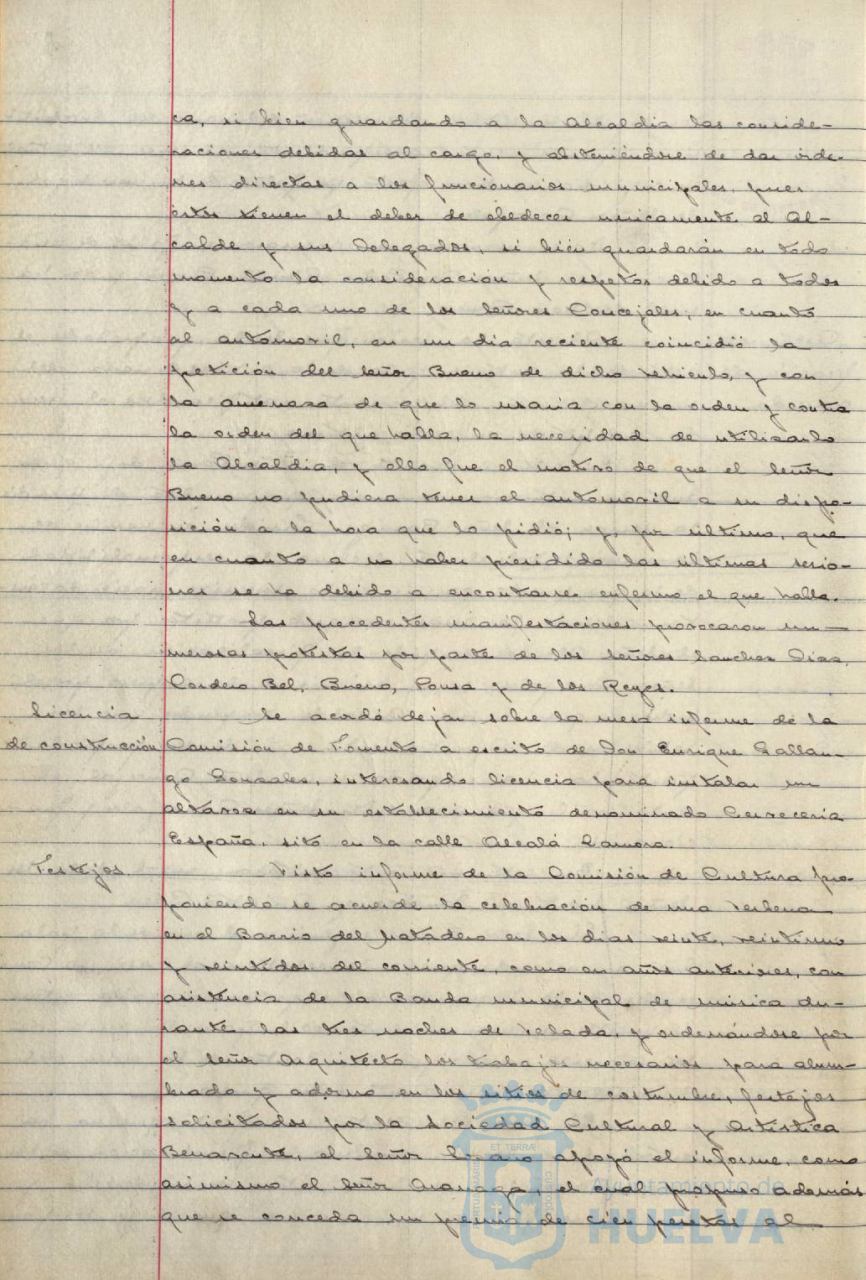 ca, si bien guardando a la Alcaldia las conside-
raciones debidas al cargo, y absteniéndose de dar órde-
nes directas a los funcionarios municipales, pues
estos tienen el deber de obedecer unicamente al Al-
calde y sus Delegados, si bién guardarán en todo
momento la consideración y respetos debido a todos
y a cada uno de los Señores Concejales; en cuanto
al automovil, en un dia reciente coincidió la
petición del Señor Bueno de dicho vehiculo, y con
la amenaza de que lo usaria con la orden y contra
la orden del que habla, la necesidad de utilizarlo
la Alcaldia, y ello fue el motivo de que el Señor
Bueno no pudiera tener el automovil a su dispo-
sición a la hora que lo pidió; y, por ultimo, que
en cuanto a no haber presidido las ultimas sesio-
nes se ha debido a encontrarse enfermo el que habla.
Las precedentes manifestaciones provocaron nu-
merosas protestas por parte de los Señores Sanchez Diaz,
Cordero Bel, Bueno, Ponsa y de los Reyes.
Licencia
de construcción
Se acordó dejar sobre la mesa informe de la
Comisión de Fomento a escrito de Don Enrique Gallan-
go Gonzales, interesando licencia para instalar un
altavoz en su establecimiento denominado Cerveceria
España, sito en la calle Alcalá Zamora.
Festejos.
Visto informe de la Comisión de Cultura pro-
poniendo se acuerde la celebración de una Verbena
en el Barrio del Matadero en los dias veinte, veintiuno
y veintidos del corriente, como en años anteriores, con
asistencia de la Banda municipal de música du-
rante las tres noches de Velada, y ordenándose por
el Señor Arquitecto los trabajos necesarios para alum-
brado y adorno en los sitios de costumbre, festejos
solicitados por la Sociedad Cultural y Artistica
Benavente, el Señor Lozano apoyó el informe, como
asimismo el Señor Aranaga, el cual propuso además
que se conceda un premio de cien pesetas al
Ayuntamiento de
HUELVA